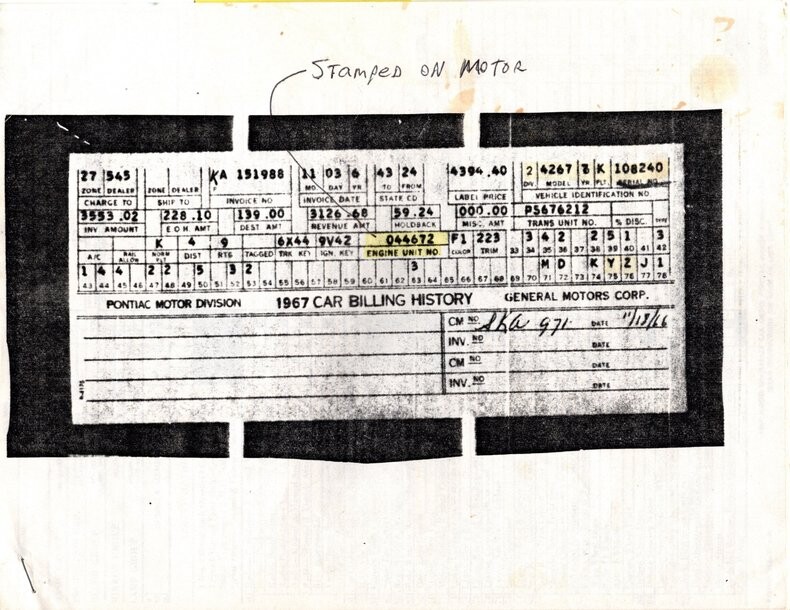 Stamped on Motor
27 545 KA 151988 11 03 6 43 24 4394.40 2 4267 K 108240
ZONE DEALER ZONE DEALER INVOICE NO MO. DAY YR. TO FROM LABEL PRICE DIV. MODEL YR PLT. SERIAL NO
CHARGE TO SHIP TO INVOICE DATE STATE CD VEHICLE IDENTIFICATION NO
3553.02 228.10 139.00 3126.68 59.24 000.00 P5676212
INV AMOUNT E O H AMT DEST AMT REVENUE AMT HOLDBACK MISC. AMT TRANS UNIT NO. % DISC. TYPE
K 4 9 6X44 9V42 044672 F1 223 3 4 2 2 5 1 3
A/C RAIL ALLOW NORM PLT DIST RTG TAGGED TRK KEY IGN. KEY ENGINE UNIT NO. COLOR TRIM 33 34 35 36 37 38 39 40 41 42
1 4 4 2 2 5 3 2 3 M D K Y Z J 1
43 44 45 46 47 48 49 50 51 52 53 54 55 56 57 58 59 60 61 62 63 64 65 66 67 68 69 70 71 72 73 74 75 76 77 78
PONTIAC MOTOR DIVISION 1967 CAR BILLING HISTORY GENERAL MOTORS CORP.
CM NO DATE 11/18/66
INV. NO DATE
CM NO DATE
INV. NO DATE